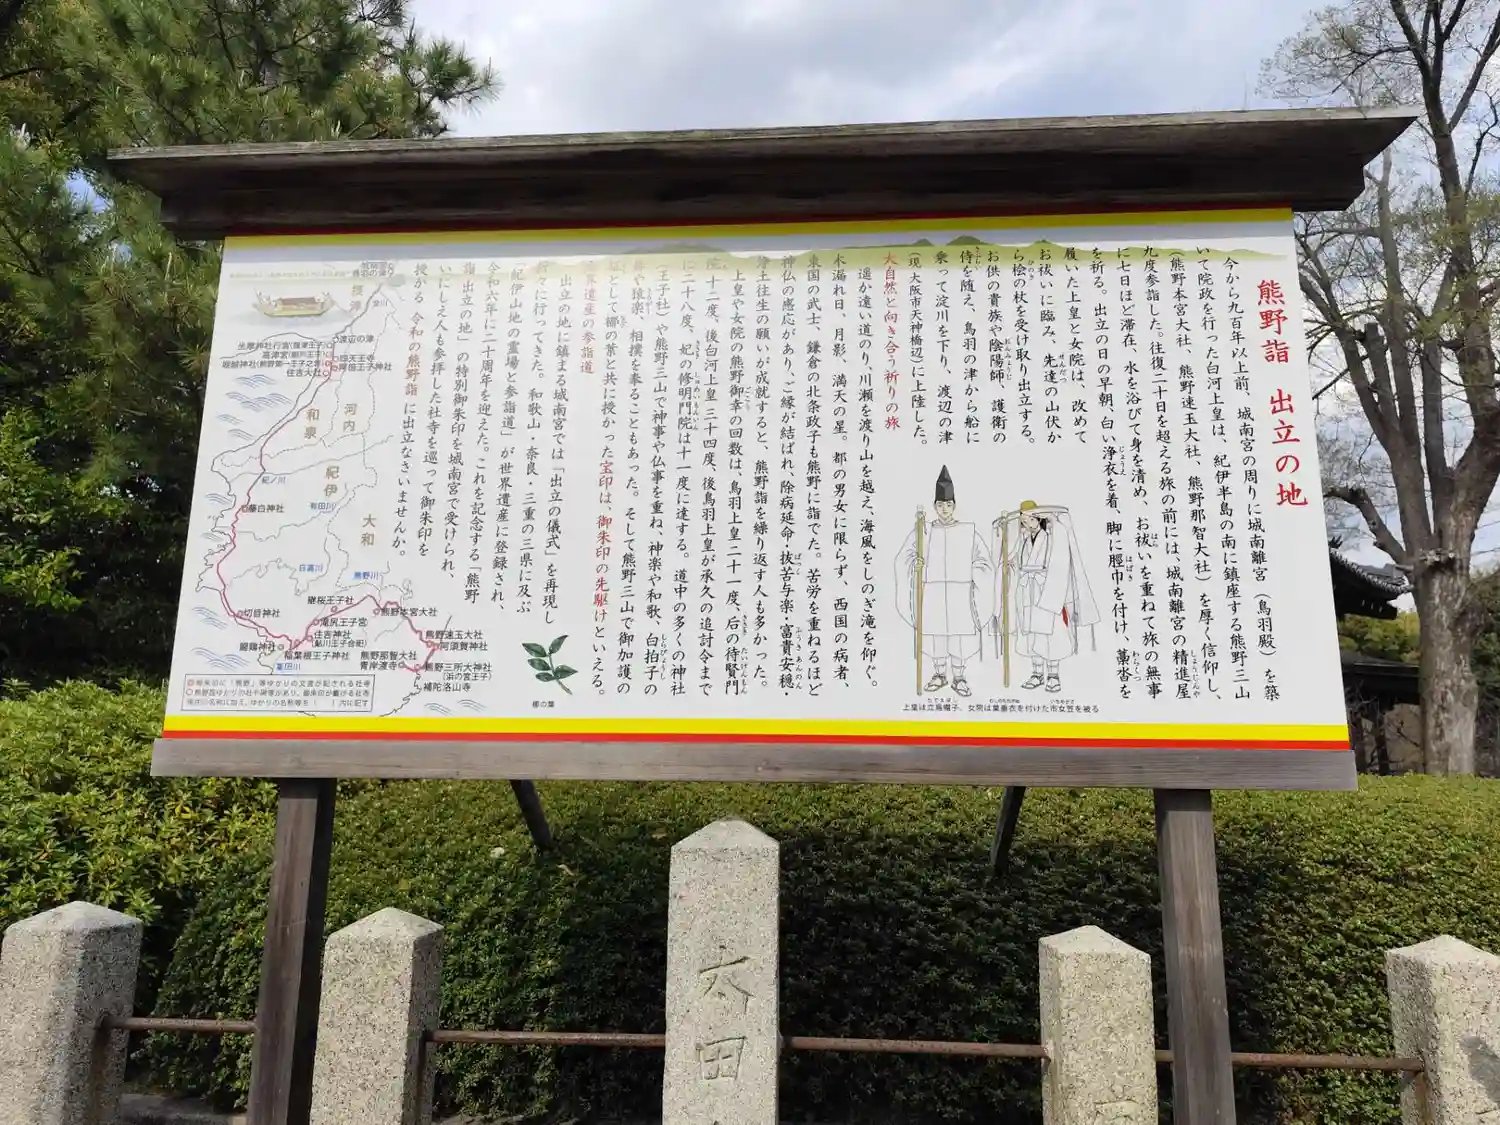 熊野詣 出立の地
今から九百年以上前、城南宮の周りに城南離宮（鳥羽殿）を築
いて院政を行った白河上皇は、紀伊半島の南に鎮座する熊野三山
（熊野本宮大社、熊野速玉大社、熊野那智大社）を厚く信仰し、
九度参詣した。往復二十日を超える旅の前には、城南離宮の精進屋
に七日ほど滞在、水を浴びて身を清め、お祓いを重ねて旅の無事
を祈る。出立の日の早朝、白い浄衣を着、脚に脛巾を付け、藁沓を
履いた上皇と女院は、改めて
お祓いに臨み、先達の山伏か
ら桧の杖を受け取り出立する。
お供の貴族や陰陽師、護衛の
侍を随え、鳥羽の津から船に
乗って淀川を下り、渡辺の津
（現 大阪市天神橋辺）に上陸した。
大自然と向き合う祈りの旅
遥か遠い道のり、川瀬を渡り山を越え、海風をしのぎ滝を仰ぐ。
木漏れ日、月影、満天の星。都の男女に限らず、西国の病者、
東国の武士、鎌倉の北条政子も熊野に詣でた。苦労を重ねるほど
神仏の感応があり、ご縁が結ばれ、除病延命・抜苦与楽・富貴安穏・
浄土往生の願いが成就すると、熊野詣を繰り返す人も多かった。
上皇や女院の熊野御幸の回数は、鳥羽上皇二十一度、后の待賢門
院十二度、後白河上皇三十四度、後鳥羽上皇が承久の追討令まで
に二十八度、妃の修明門院は十一度に達する。道中の多くの神社
（王子社）や熊野三山で神事や仏事を重ね、神楽や和歌、白拍子の
舞や猿楽、相撲を奉ることもあった。そして熊野三山で御加護の
証として梛の葉と共に授かった宝印は、御朱印の先駆けといえる。
世界遺産の参詣道
出立の地に鎮まる城南宮では「出立の儀式」を再現し
折々に行ってきた。和歌山・奈良、三重の三県に及ぶ
「紀伊山地の霊場と参詣道」が世界遺産に登録され、
令和六年に二十周年を迎えた。これを記念する「熊野
詣 出立の地」の特別御朱印を城南宮で受けられ、
いにしえ人も参拝した社寺を巡って御朱印を
授かる、令和の熊野詣に出立なさいませんか。
上皇は立烏帽子、女院は葉垂衣を付けた市女笠を被る
梛の葉
城南宮
鳥羽の津
淀川
摂津
渡辺の津
坐摩神社行宮
高津宮
堀越神社
四天王寺
阿倍王子神社
住吉大社
河内
和泉
紀伊
大和
紀ノ川
有田川
藤白神社
日高川
熊野川
切目神社
継桜王子社
熊野本宮大社
滝尻王子宮
住吉神社
（鮎川王子合祀）
熊野速玉大社
阿須賀神社
闘鶏神社
稲葉根王子神社
熊野那智大社
青岸渡寺
熊野三所大神社
（浜の宮王子）
補陀洛山寺
富田川
太田